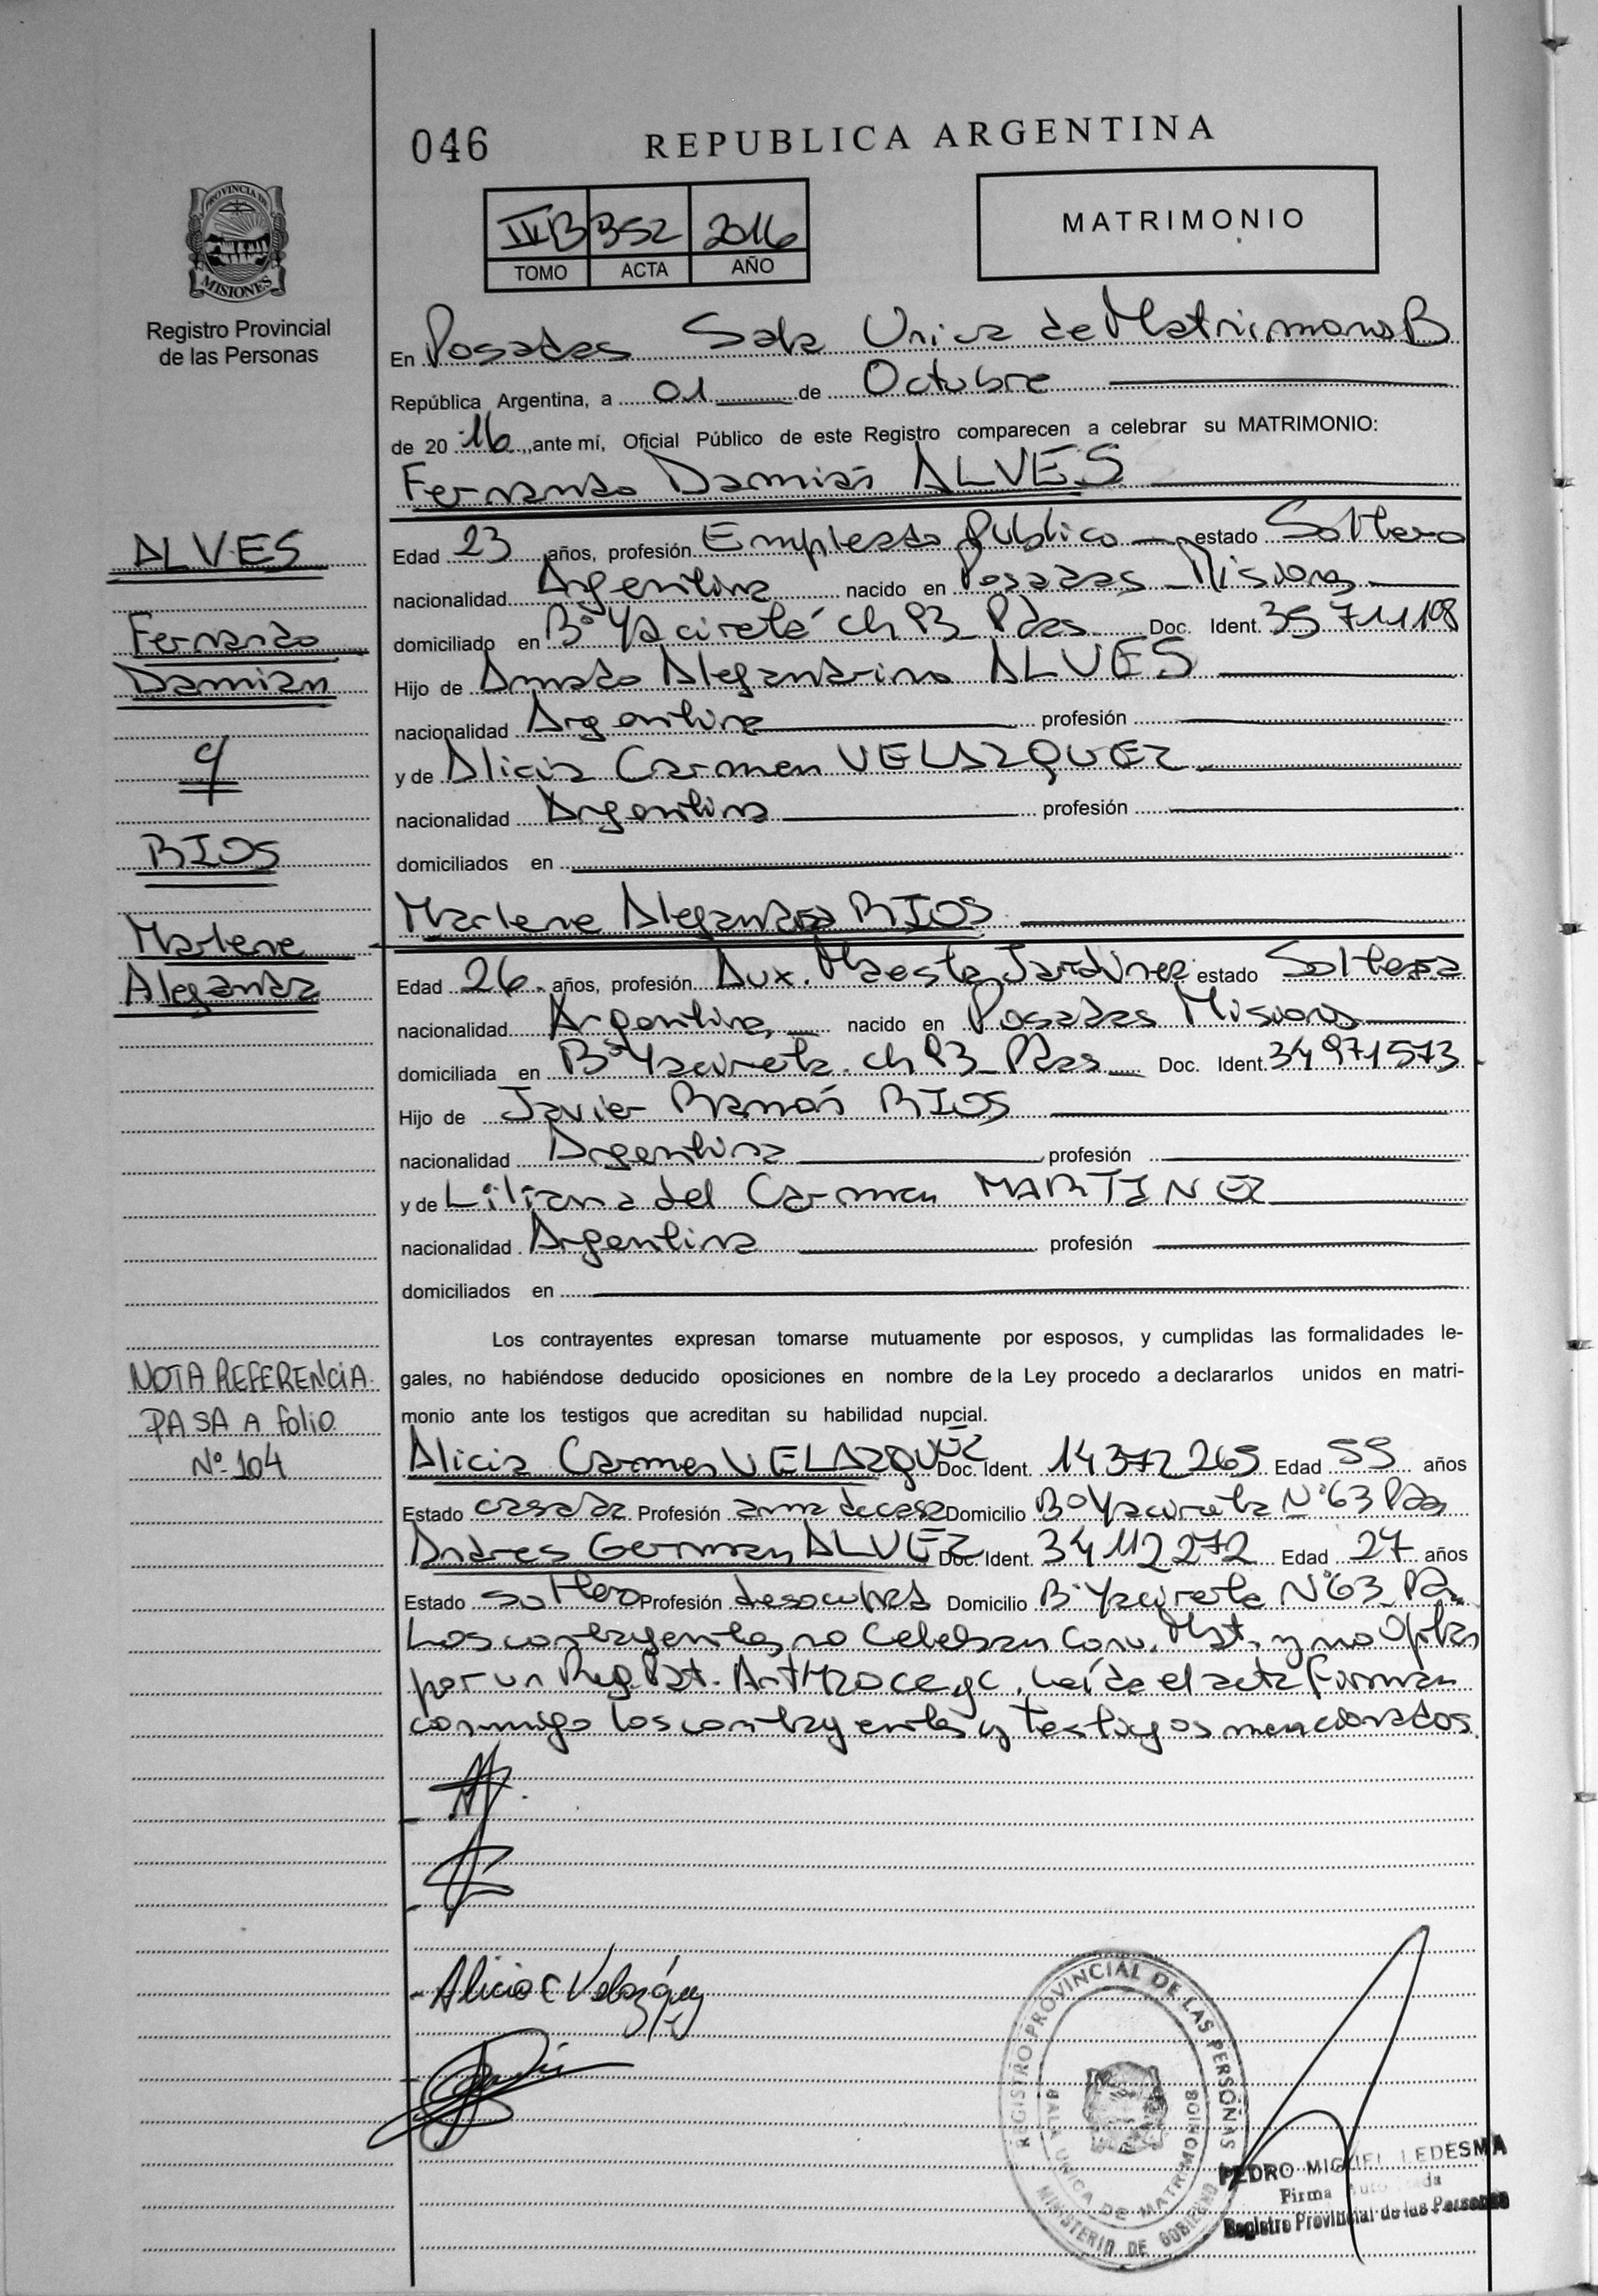 046
REPUBLICA ARGENTINA
PROVINCIA DE
MISIONES
Registro Provincial
de las Personas
III B 352 2016
TOMO ACTA AÑO
MATRIMONIO
En Posadas Sala Unica de Matrimonios B
República Argentina, a 01 de Octubre
de 20 16 ante mí, Oficial Público de este Registro comparecen a celebrar su MATRIMONIO:
Fernando Damián ALVES
ALVES
Fernando
Damian
c/
RIOS
Marlene
Alejandra
Edad 23 años, profesión Empleado Publico estado Soltero
nacionalidad Argentina nacido en Posadas Misiones
domiciliado en Bº Yacireta ch 93 Pdas Doc. Ident. 35711198
Hijo de Amado Alejandrino ALVES
nacionalidad Argentina profesión
y de Alicia Carmen VELAZQUEZ
nacionalidad Argentina profesión
domiciliados en
Marlene Alejandra RIOS
Edad 26 años, profesión Aux. Maesta Jardinera estado Soltera
nacionalidad Argentina nacido en Posadas Misiones
domiciliada en Bº Yacireta ch 93 Pdas Doc. Ident. 34971573
Hijo de Javier Ramón RIOS
nacionalidad Argentina profesión
y de Liliana del Carmen MARTINEZ
nacionalidad Argentina profesión
domiciliados en
Los contrayentes expresan tomarse mutuamente por esposos, y cumplidas las formalidades le-
gales, no habiéndose deducido oposiciones en nombre de la Ley procedo a declararlos unidos en matri-
monio ante los testigos que acreditan su habilidad nupcial.
NOTA REFERENCIA
PASA A folio
Nº 104
Alicia Carmen VELAZQUEZ Doc. Ident. 14372265 Edad 55 años
Estado casada Profesión ama de casa Domicilio Bº Yacireta Nº 63 Pdas
Andres German ALVEZ Doc. Ident. 34112272 Edad 27 años
Estado soltero Profesión desocupad Domicilio Bº Yacireta Nº 63 Pdas
Los contrayentes no Celebran Conv. Mat. y no Optan
por un Reg. Pat. Art 420 CCyC. Leída el acta firman
conmigo los contrayentes y testigos mencionados.
Alicia C Velazquez
REGISTRO PROVINCIAL DE LAS PERSONAS
SALA UNICA DE MATRIMONIOS
MINISTERIO DE GOBIERNO
PEDRO MIGUEL LEDESMA
Firma Autorizada
Registro Provincial de las Personas